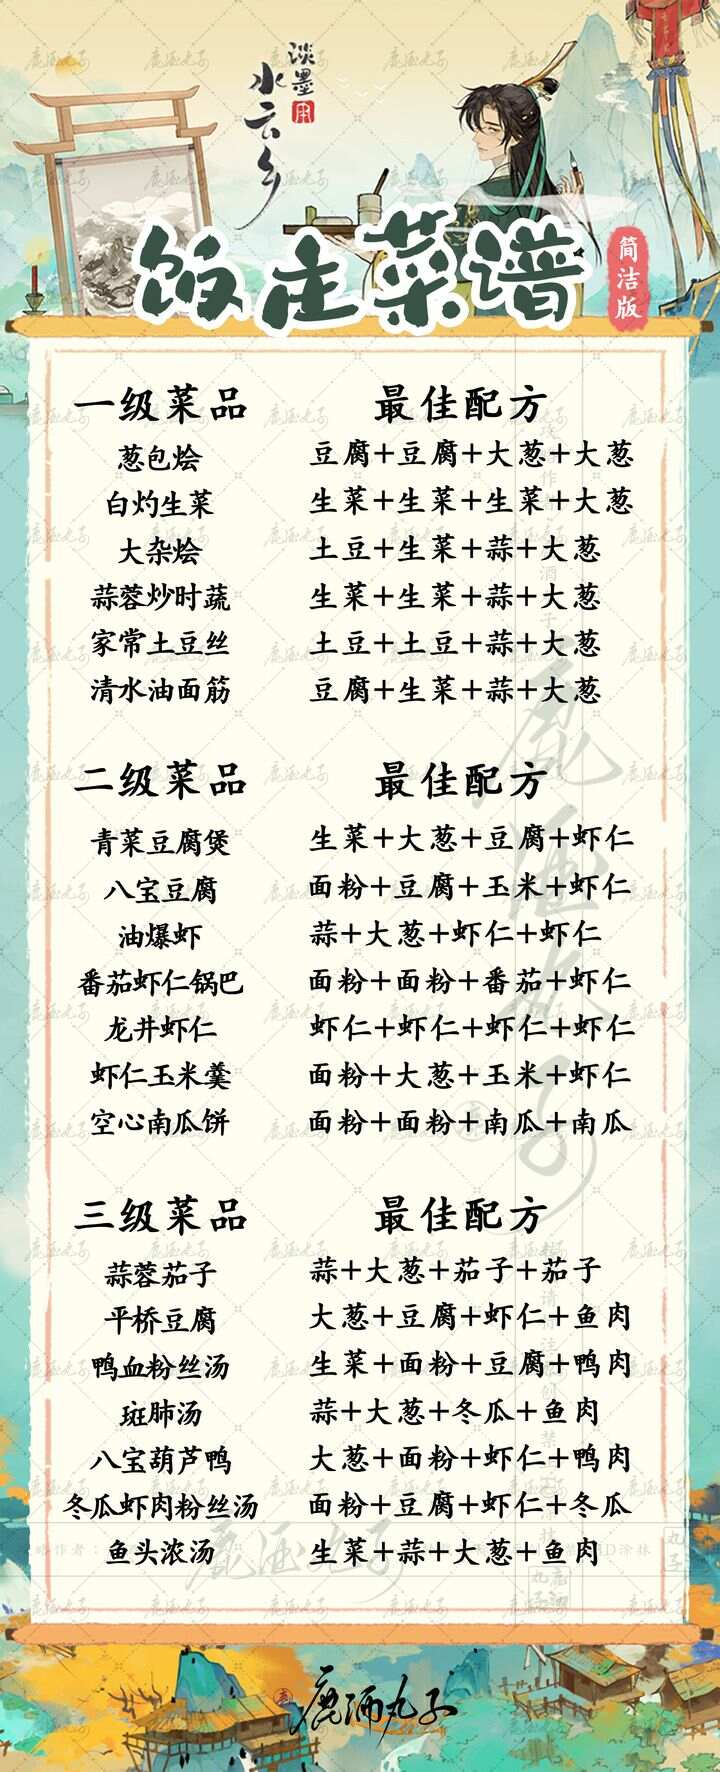 淡墨
水云乡
饭庄菜谱
简洁版
一级菜品 最佳配方
葱包烩 豆腐+豆腐+大葱+大葱
白灼生菜 生菜+生菜+生菜+大葱
大杂烩 土豆+生菜+蒜+大葱
蒜蓉炒时蔬 生菜+生菜+蒜+大葱
家常土豆丝 土豆+土豆+蒜+大葱
清水油面筋 豆腐+生菜+蒜+大葱
二级菜品 最佳配方
青菜豆腐煲 生菜+大葱+豆腐+虾仁
八宝豆腐 面粉+豆腐+玉米+虾仁
油爆虾 蒜+大葱+虾仁+虾仁
番茄虾仁锅巴 面粉+面粉+番茄+虾仁
龙井虾仁 虾仁+虾仁+虾仁+虾仁
虾仁玉米羹 面粉+大葱+玉米+虾仁
空心南瓜饼 面粉+面粉+南瓜+南瓜
三级菜品 最佳配方
蒜蓉茄子 蒜+大葱+茄子+茄子
平桥豆腐 大葱+豆腐+虾仁+鱼肉
鸭血粉丝汤 生菜+面粉+豆腐+鸭肉
斑肺汤 蒜+大葱+冬瓜+鱼肉
八宝葫芦鸭 大葱+面粉+虾仁+鸭肉
冬瓜虾肉粉丝汤 面粉+豆腐+虾仁+冬瓜
鱼头浓汤 生菜+蒜+大葱+鱼肉
鹿酒丸子